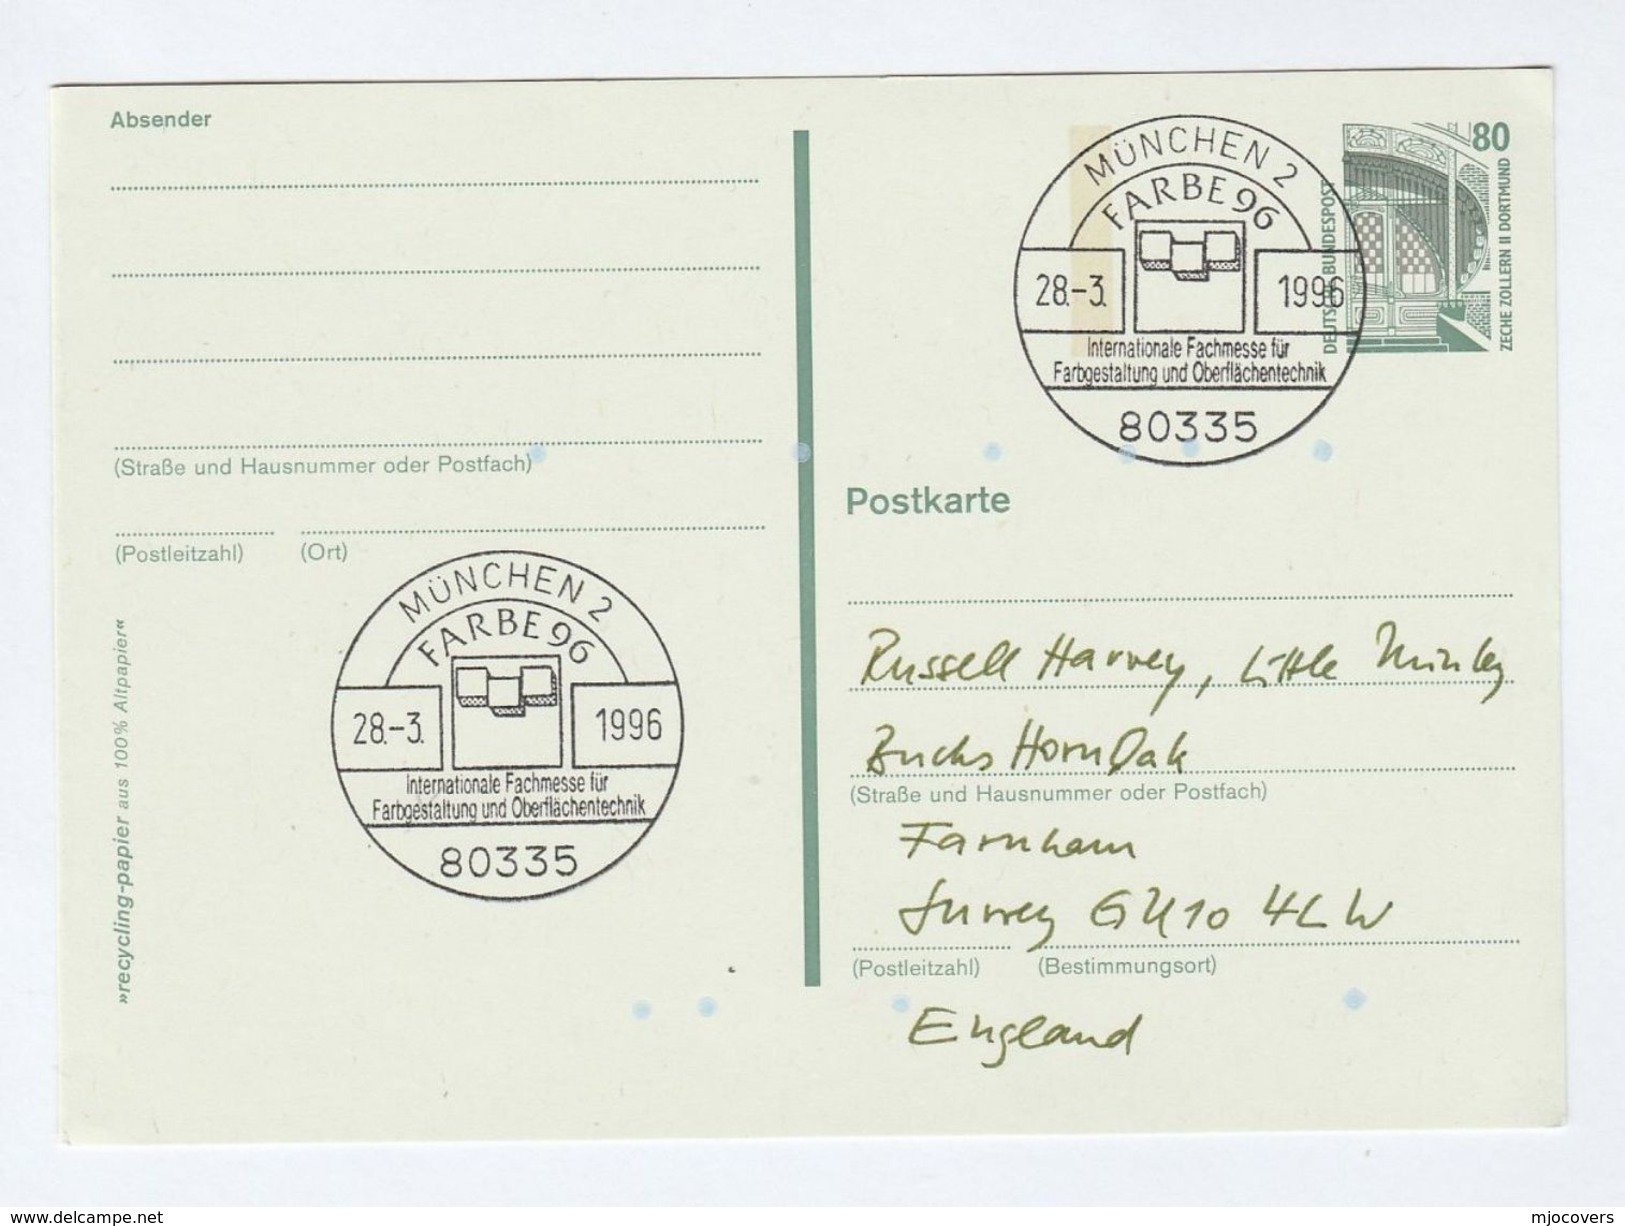 Absender
(Straße und Hausnummer oder Postfach)
(Postleitzahl) (Ort)
»recycling-papier aus 100% Altpapier«
MÜNCHEN 2
FARBE 96
28.-3. 1996
Internationale Fachmesse für
Farbgestaltung und Oberflächentechnik
80335
MÜNCHEN 2
FARBE 96
28.-3. 1996
Internationale Fachmesse für
Farbgestaltung und Oberflächentechnik
80335
80
DEUTSCHE BUNDESPOST
ZECHE ZOLLERN II DORTMUND
Postkarte
Russell Harvey, Little Minley
Bucks Horn Oak
(Straße und Hausnummer oder Postfach)
Farnham
Surrey GU10 4LW
(Postleitzahl) (Bestimmungsort)
England
www.delcampe.net
mjocovers